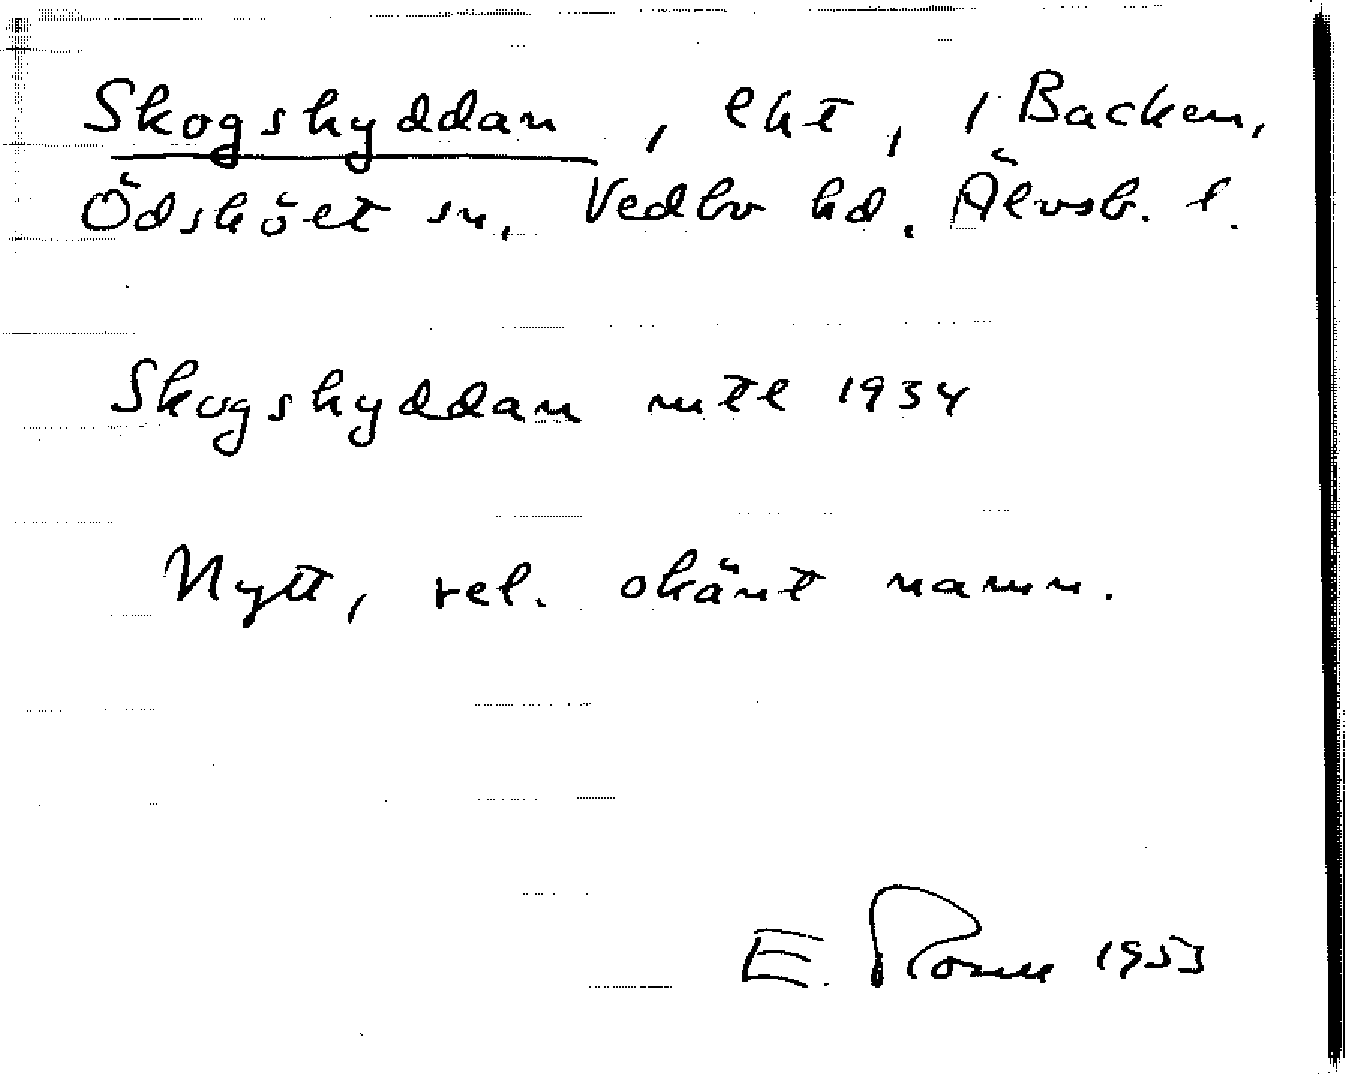 Skogshyddan, lht, 1 Backen,
Ödskölt sn, Vedbo hd. Älvsb. l.
Skogshyddan mtl 1934
Nytt, rel. okänt namn.
E. 1953